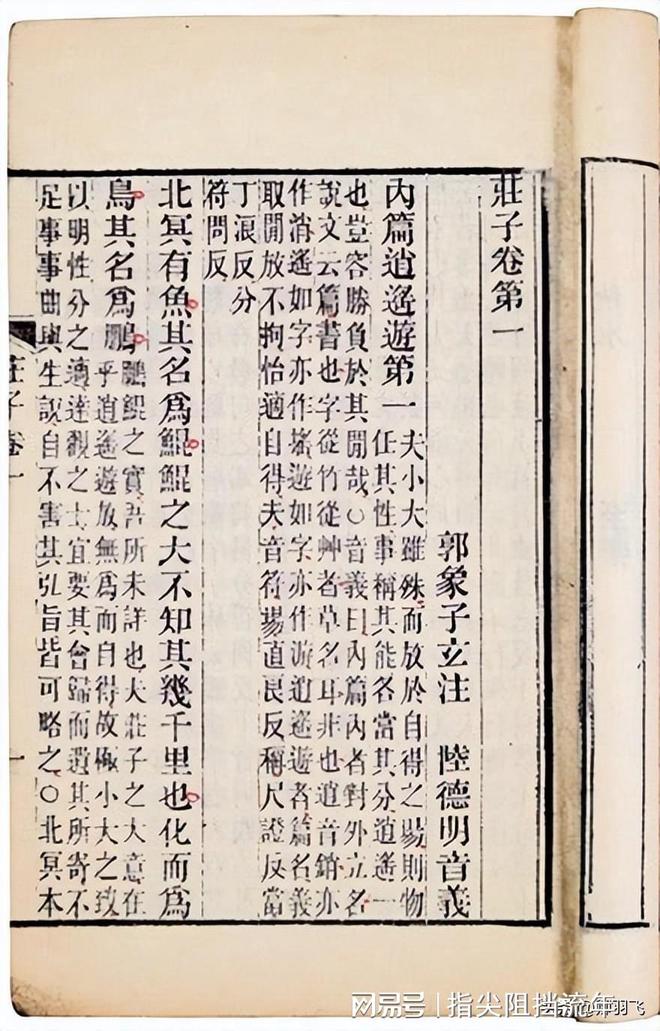 莊子卷第一
郭象子玄注 陸德明音義
內篇逍遙遊第一
夫小大雖殊而放於自得之場則物
任其性事稱其能各當其分逍遙一
也豈容勝負於其閒哉○音義曰內篇內者對外立名
說文云篇書也字從竹從艸者草名耳非也逍音銷亦
作消遙如字亦作搖遊如字亦作游逍遙遊者篇名義
取閒放不拘怡適自得夫音符場直良反稱尺證反當
丁浪反分
符問反
北冥有魚其名爲鯤鯤之大不知其幾千里也化而爲
鳥其名爲鵬
鵬鯤之實吾所未詳也夫莊子之大意在
乎逍遙遊放無爲而自得故極小大之致
以明性分之適達觀之士宜要其會歸而遺其所寄不
足事事曲與生說自不害其弘旨皆可略之○北冥本
莊子卷一
一
网易号 | 指尖阻挡流年
羽飞